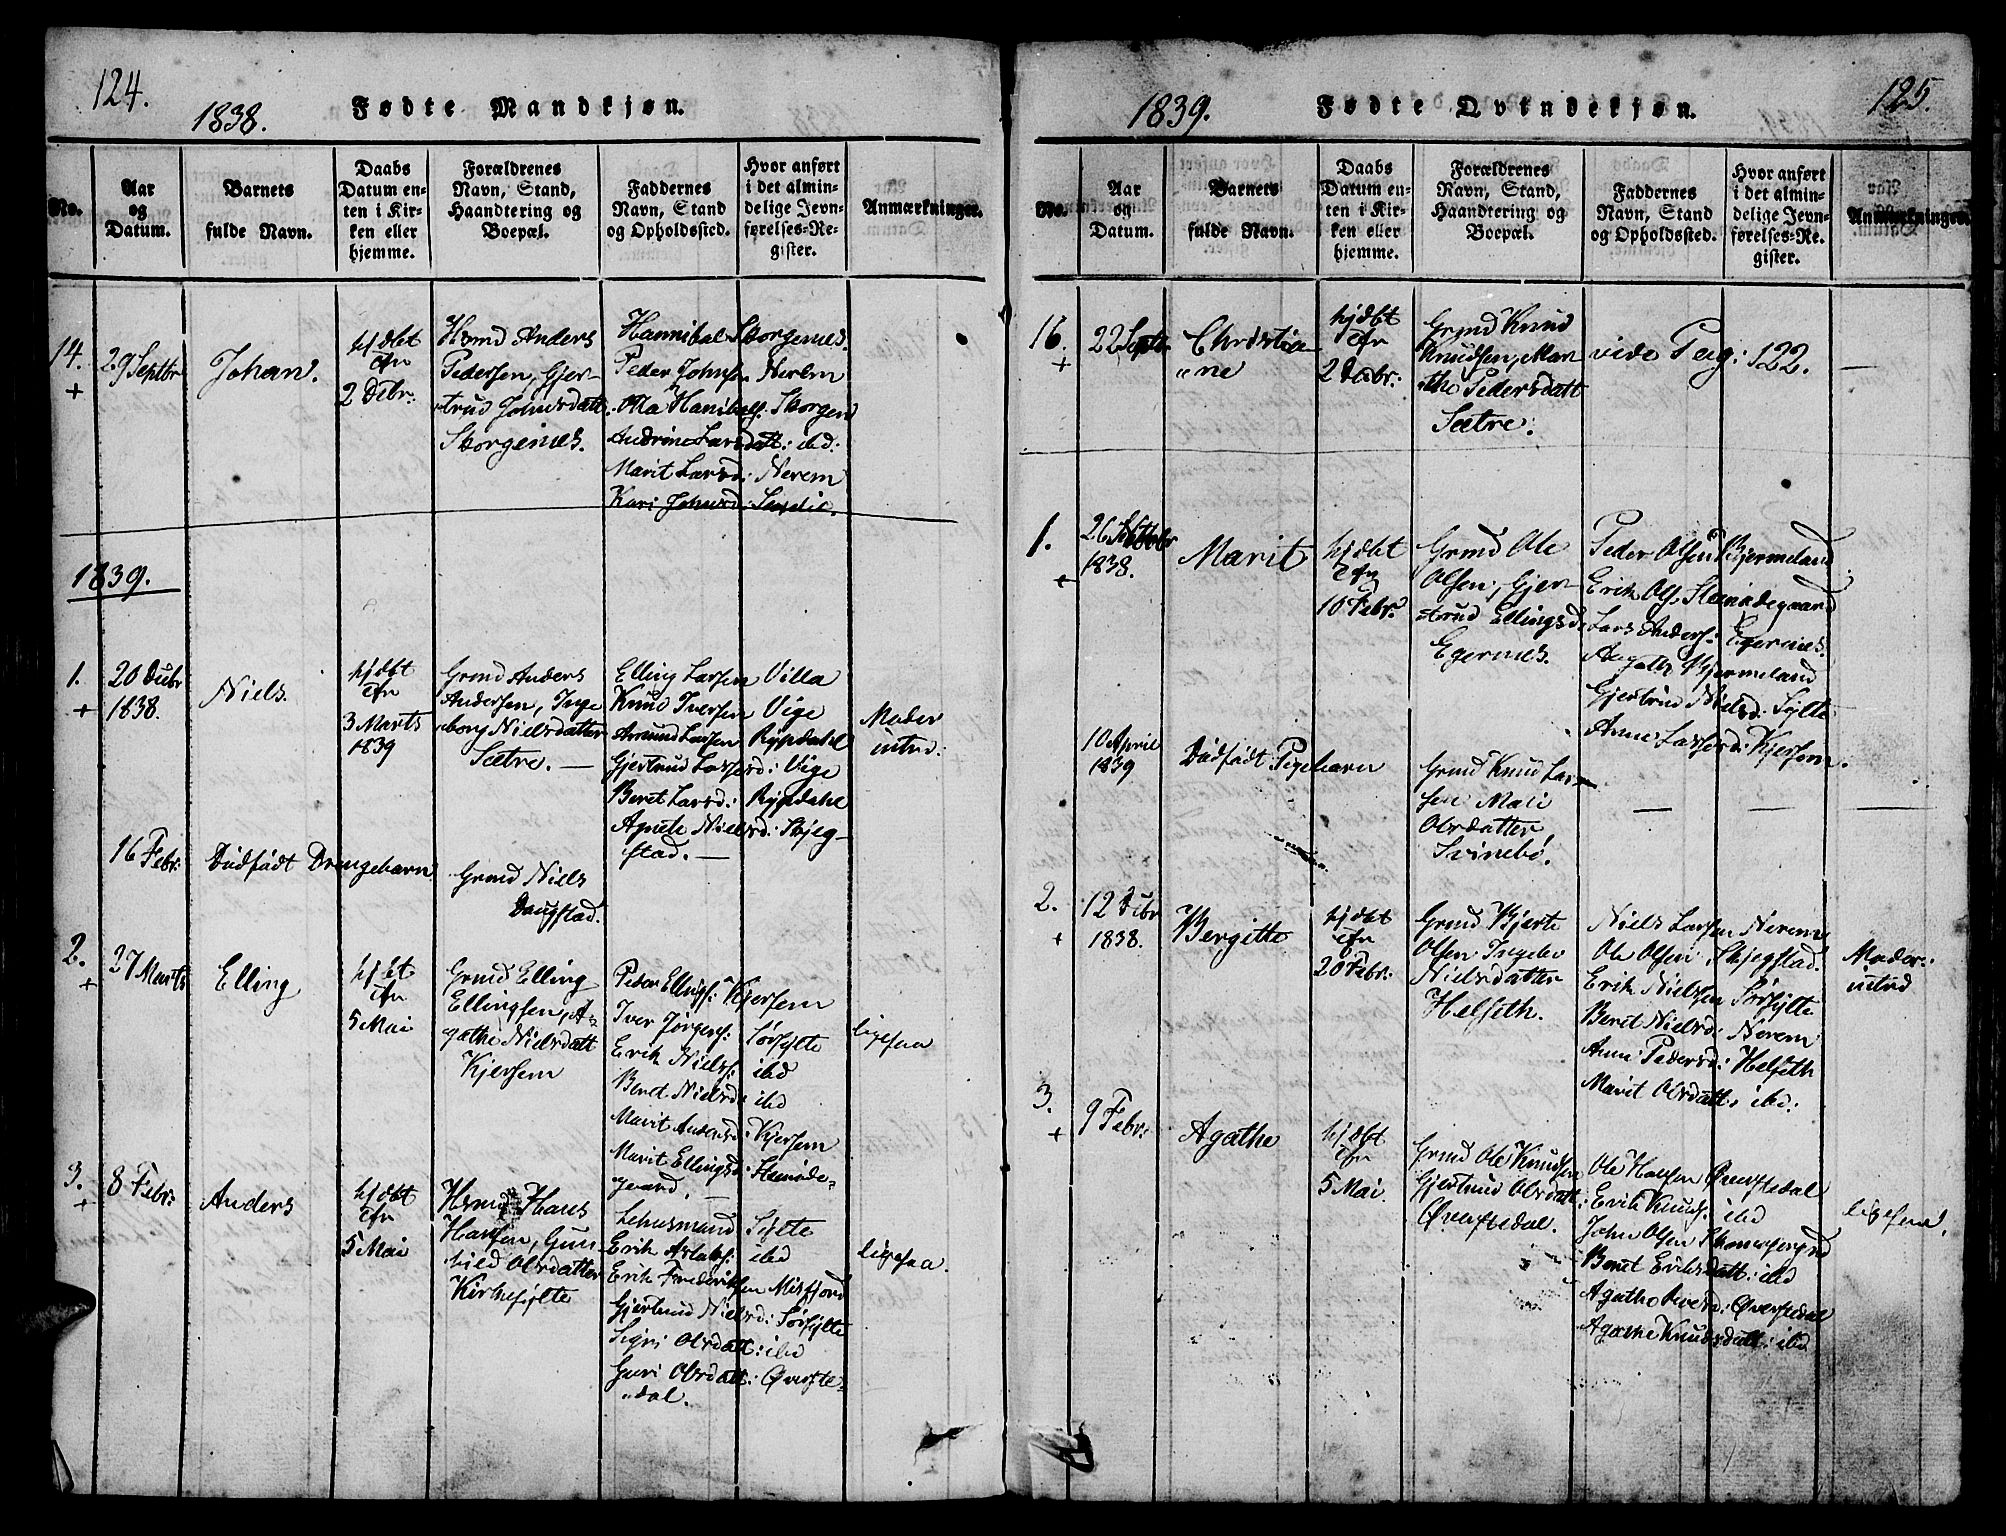 124.
1838.
Fødte Mandkjøn.
No.
Aar
og
Datum.
Barnets
fulde Navn.
Daabs
Datum en-
ten i Kir-
ken eller
hjemme.
Forældrenes
Navn, Stand,
Haandtering og
Boepæl.
Faddernes
Navn, Stand
og Opholdssted.
Hvor anført
i det almin-
delige Jevn-
førelses-Re-
gister.
Anmærkninger.
14.
+
29 Septbr
Johan.
hjdbt
cfr
2 Debr:
Hsmd Anders
Pedersen, Gjer-
trud Johnsdatt
Skorgenes.
Hannibal Skorgenes.
Peder Johnsen Nerem
Ola Hanibals: Skorgen
Andrine Larsdatt: ibd:
Marit Larsd: Nerem
Kari Johnsd:
1839.
1.
+
20 Debr
1838.
Niels.
hjdbt
cfr
3 Marts
1839
Grmd Anders
Andersen, Inge
borg Nielsdatter
Sætre. —
Elling Larsen Villa
Knud Iversen Vige
Amund Larsen Rypdahl
Gjertrud Larsd: Vige
Beret Larsd: Rypdahl
Agnete Nielsd: Skjeg-
stad. —
Moder
introd:
16 Febr:
Dødfødt Drengebarn
Grmd Niels
Daugstad.
2.
+
27 Marts
Elling
hjdbt
cfr
5 Mai
Grmd Elling
Ellingsen, A-
gathe Nielsdatt
Kjersem
Peder Ellings: Kjersem
Iver Jørgens: Sørsylte
Erik Niels: ibd
Beret Nielsd: ibd
Marit Andersd: Kjersem
Marit Ellingsd: Steinde-
gaard. —
ligesaa
3.
+
8 Febr:
Anders
hjdbt
cfr
5 Mai
Hsmd Hans
Hansen, Gun-
hild Olsdatter
Kirkesylte
Lehnsmand Sylte
Erik Aslaks: ibd
Erik Frederiksen Misfjord
Gjertrud Nielsd: Sørsylte
Sigri Olsdatt: ibd
Guri Olsdatt: Øverste-
dal.
ligesaa.
1839.
Fødte Qvindekjøn.
125.
No.
Aar
og
Datum.
Barnets
fulde Navn.
Daabs
Datum en-
ten i Kir-
ken eller
hjemme.
Forældrenes
Navn, Stand,
Haandtering og
Boepæl.
Faddernes
Navn, Stand
og Opholdssted.
Hvor anført
i det almin-
delige Jevn-
førelses-Re-
gister.
Anmærkninger.
16.
+
22 Septr
Christia-
ne
hjdbt
cfr
2 Debr:
Grmd Knud
Knudsen, Mar
the Pedersdatt
Sætre.
vide Pag: 122.
—
1.
+
26
1838.
Marit
hjdbt
cfr
10 Febr:
Grmd Ole
Olsen, Gjer
trud Ellingsd.
Egernes.
Peder Olsen Gjermeland.
Erik Ols: Steindegaard
Lars Anders: Egernes.
Agathe Gjermeland
Gjertrud Nielsd: Sylte
Anne Larsd: Kjersem.
10 April
1839
Dødfødt Pigebarn
Grmd Knud Lar-
sen Mari
Olsdatter
Svinebø.
— — —
2.
+
12 Debr
1838.
Bergitte
hjdbt
cfr
20 Febr:
Grmd Bjerte
Olsen Ingebo
Nielsdatter
Helseth.
Niels Larsen Nerem
Ole Olsen Skjegstad.
Erik Nielsen Sørsylte
Beret Nielsd: Nerem
Anne Pedersd: Helseth
Marit Olsdatt: ibd:
Moder:
introd
3.
+
9 Febr:
Agathe
hjdbt
cfr
5 Mai.
Grmd Ole Knudsen
Gjertrud Olsdatt:
Øverstedal.
Ole Hansen Øverstedal
Erik Knuds: ibd
John Olsen
Beret Eriksdatt: ibd
Agathe Iversd: Øverstedal
Agathe Knudsdatt: ibd
ligesaa.